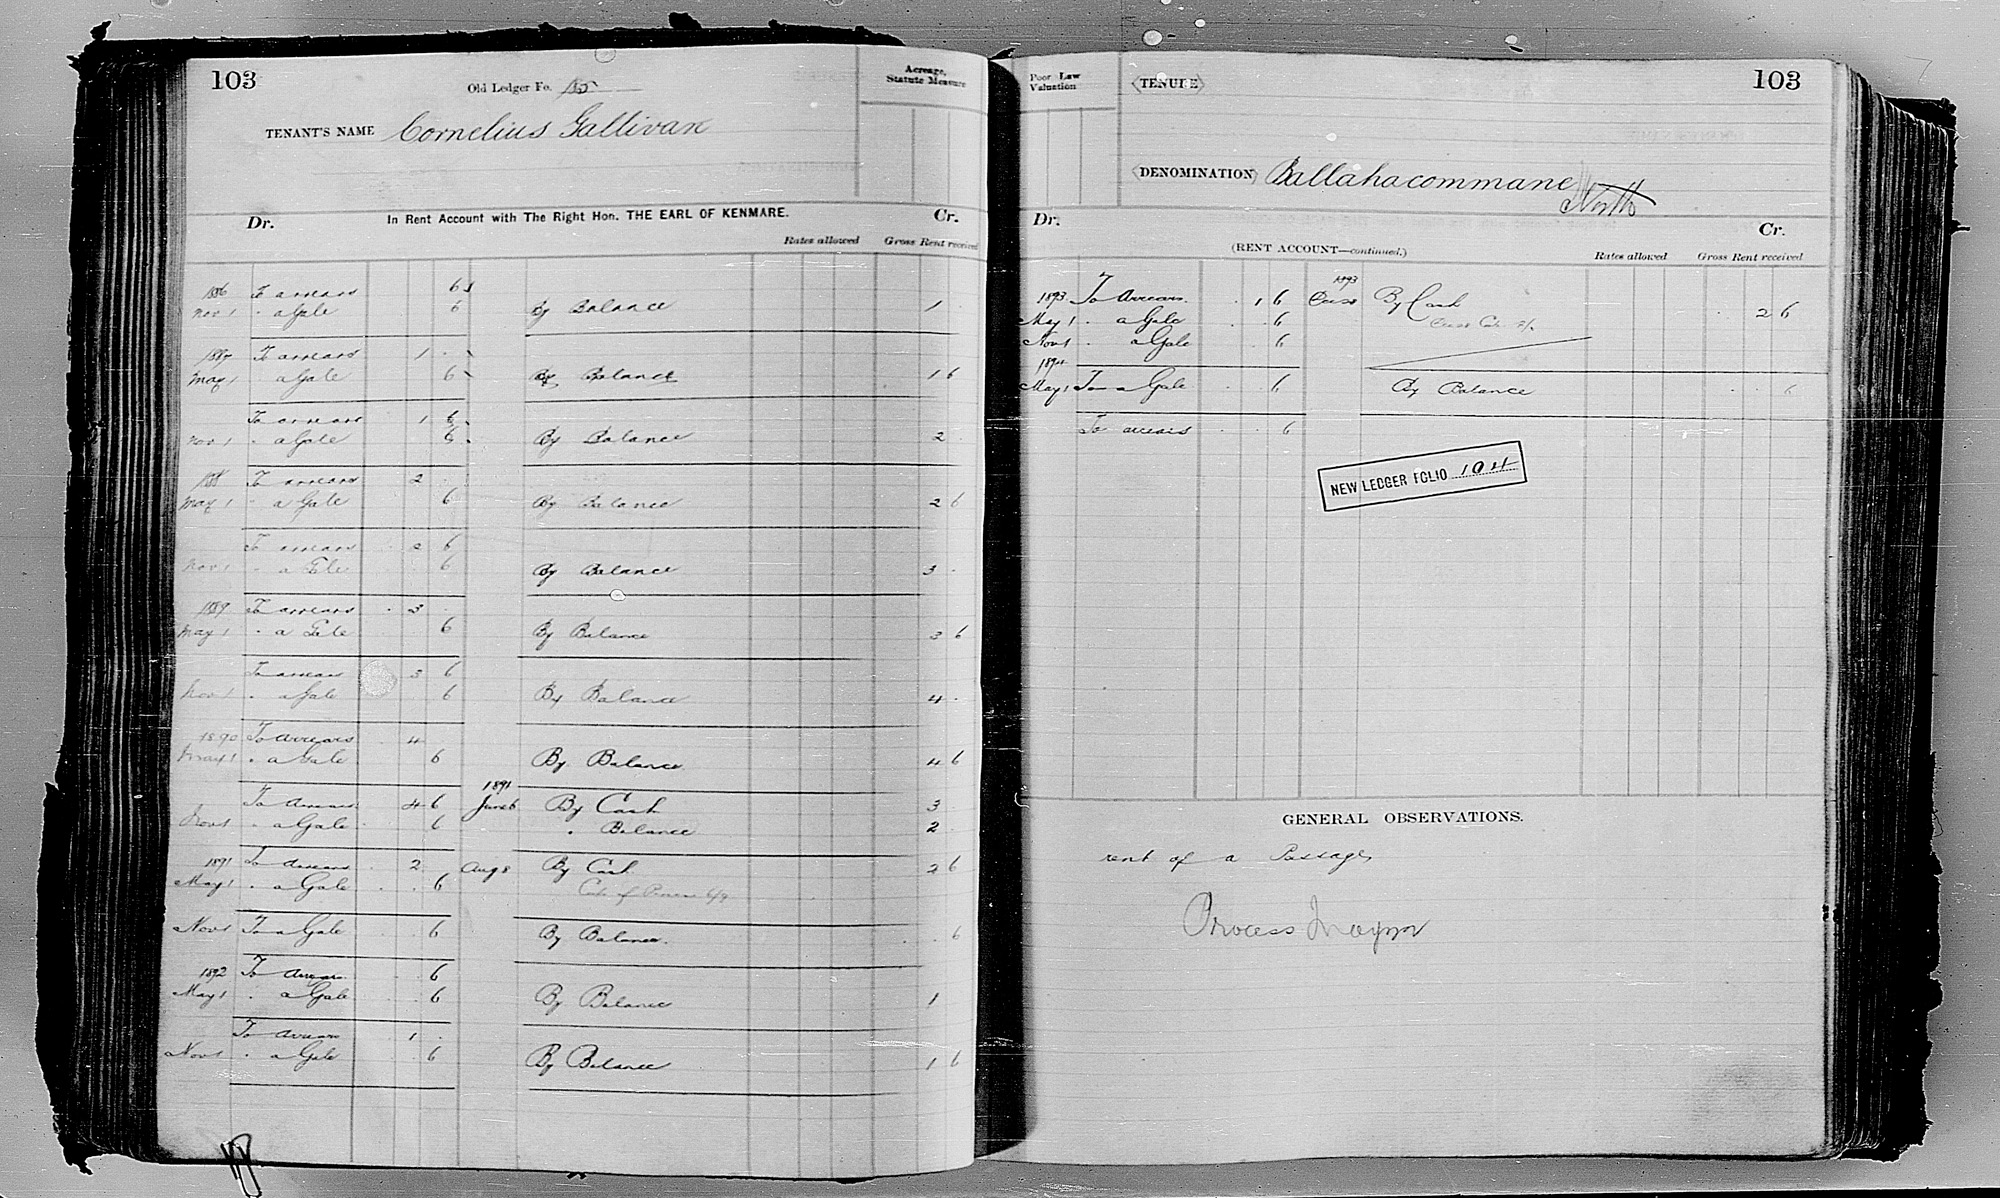 103
Old Ledger Fo.
Acreage,
Statute Measure
TENANT'S NAME Cornelius Gallivan
Dr. In Rent Account with The Right Hon. THE EARL OF KENMARE. Cr.
Rates allowed Gross Rent received
1886 To arrears 6
Nov 1 " a Gale 6 By Balance 1
1887 To arrears 1
May 1 a Gale 6 By Balance 1 6
To arrears 1 6
Nov 1 " a Gale 6 By Balance 2
1888 To arrears 2
May 1 " a Gale 6 By Balance 2 6
To arrears 2 6
Nov 1 " a Gale 6 By Balance 3
1889 To arrears 3
May 1 " a Gale 6 By Balance 3 6
To arrears 3 6
Nov 1 " a Gale 6 By Balance 4
1890 To arrears 4
May 1 " a Gale 6 By Balance 4 6
1891
To Arrears 4 6 June 6 By Cash 3
Nov 1 " a Gale 6 " Balance 2
1891 To Arrears 2 Aug 8 By Cash 2 6
May 1 " a Gale 6
Nov 1 To a Gale 6 By Balance 6
1892 To Arrears 6
May 1 " a Gale 6 By Balance 1
To Arrears 1
Nov 1 " a Gale 6 By Balance 1 6
Poor Law
Valuation
TENURE
103
DENOMINATION Ballahacommane
North
Dr. Cr.
(RENT ACCOUNT—continued.)
Rates allowed Gross Rent received
1893
1893 To Arrears 1 6 By Cash 2 6
May 1 " a Gale 6
Nov 1 " a Gale 6
1894
May 1 To a Gale 6 By Balance 6
To arrears 6
NEW LEDGER FOLIO 104
GENERAL OBSERVATIONS.
rent of a Passage
Process